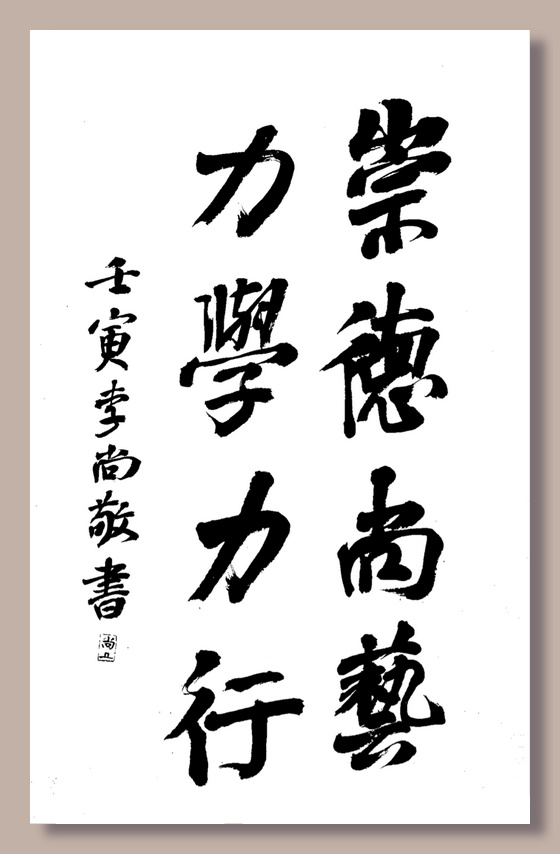 崇德尚藝
力學力行
壬寅李尚敬書